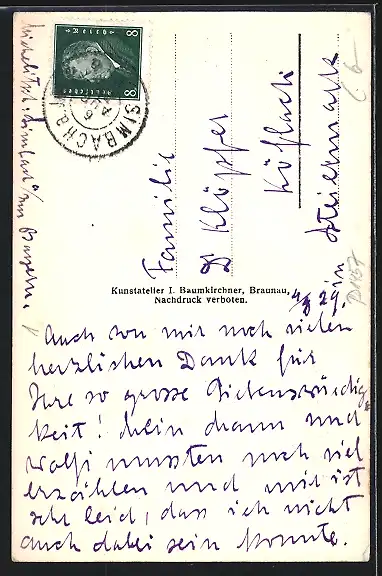 8 8
SIMBACH
Familie
Dr Klöpfer
Köflach
in Steiermark
Kunstatelier I. Baumkirchner, Braunau,
Nachdruck verboten.
4/8 29.
Auch von mir noch vielen
herzlichen Dank für
Ihre so grosse Liebenswürdig-
keit! Mein Mann und
Wolfi mussten mir viel
erzählen und mir ist
sehr leid, dass ich nicht
auch dabei sein konnte.